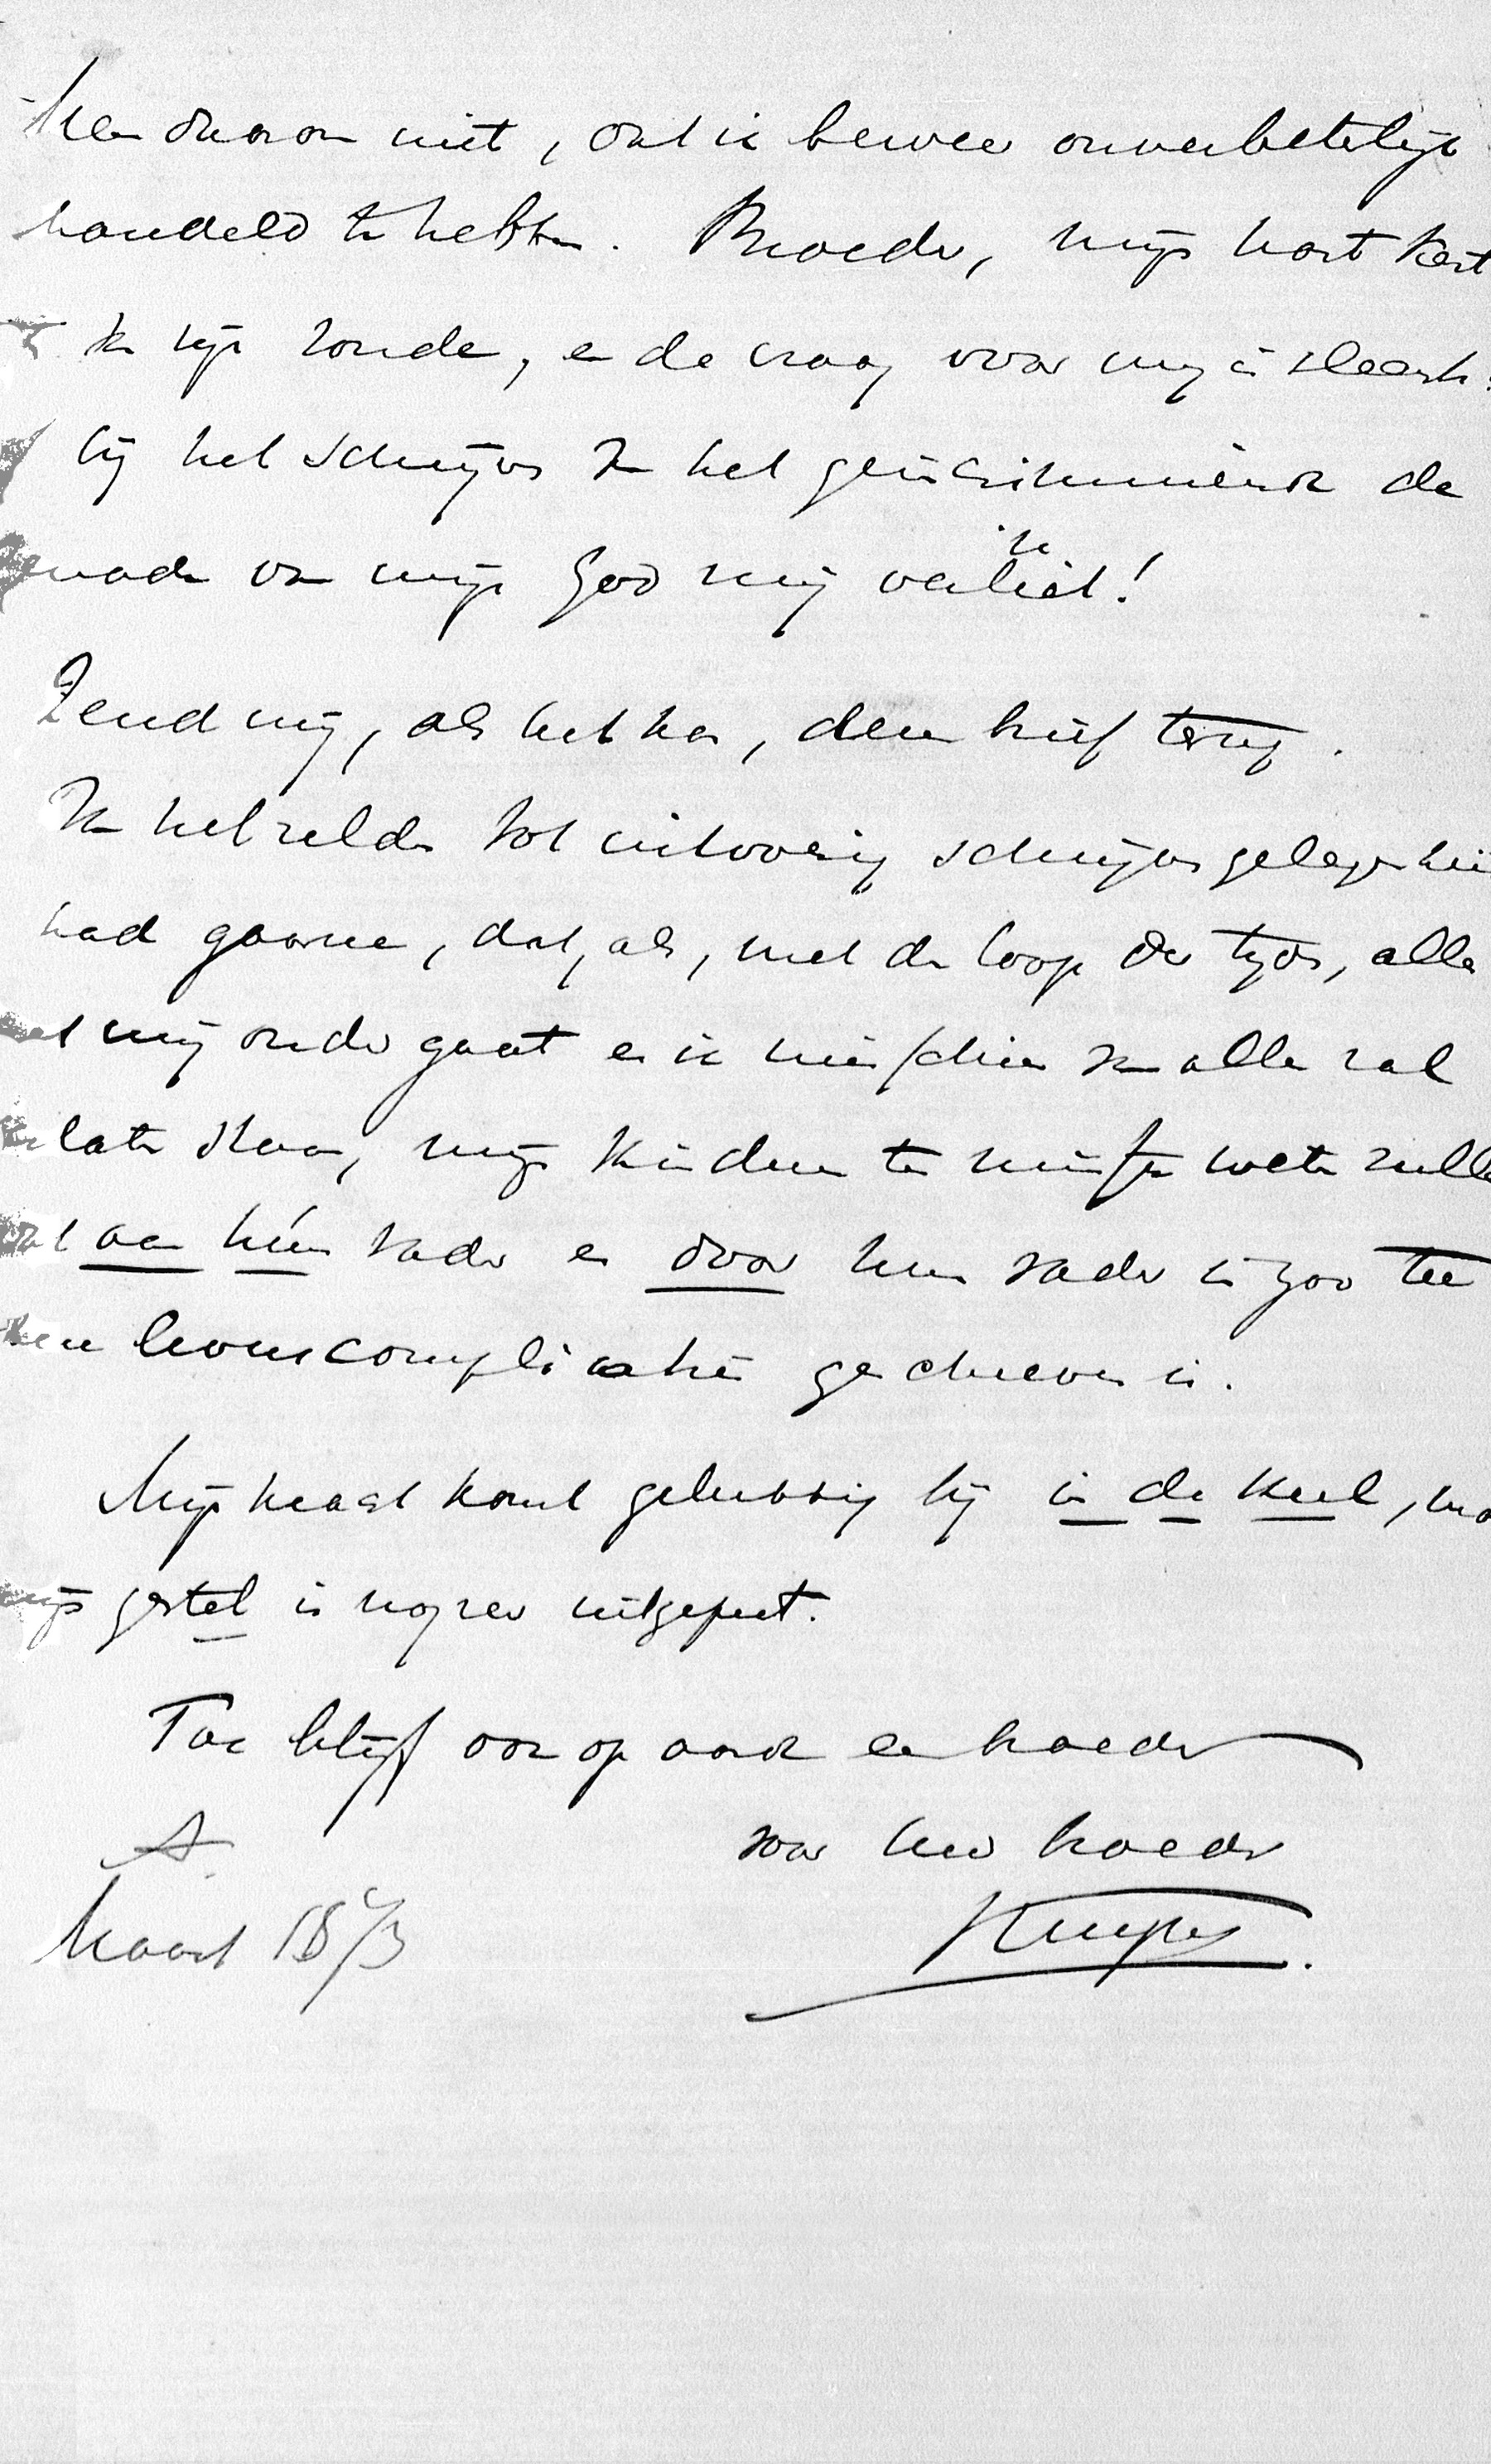 daarom niet, dat ik beweer onverbeterlijk
handeld te hebben. Broeder, mijn hart kent
zijn zonde, en de vraag voor mij is slechts:
bij het schrijven van het geïncrimineerde de
genade van mijn God mij verliet!
Zend mij, als het kan, dien brief terug.
In hetzelfde tot uitvoerig schrijven gelegenheid
had gaarne, dat, als, met de loop der tijden, alles
met mij onder gaat en ik misschien van allen zal
laten staan, mijn kinderen ten minste weten zullen
wat aan hún vader en door hun vader in zoo tee
levenscomplicatie geschreven is.
Mijn kwaal komt gelukkig bij in de keel, maa
mijn gestel is nog zeer uitgeput.
Toe blijf ook op aard een broeder
A. voor Uw broeder
Maart 1873 Kuyper.